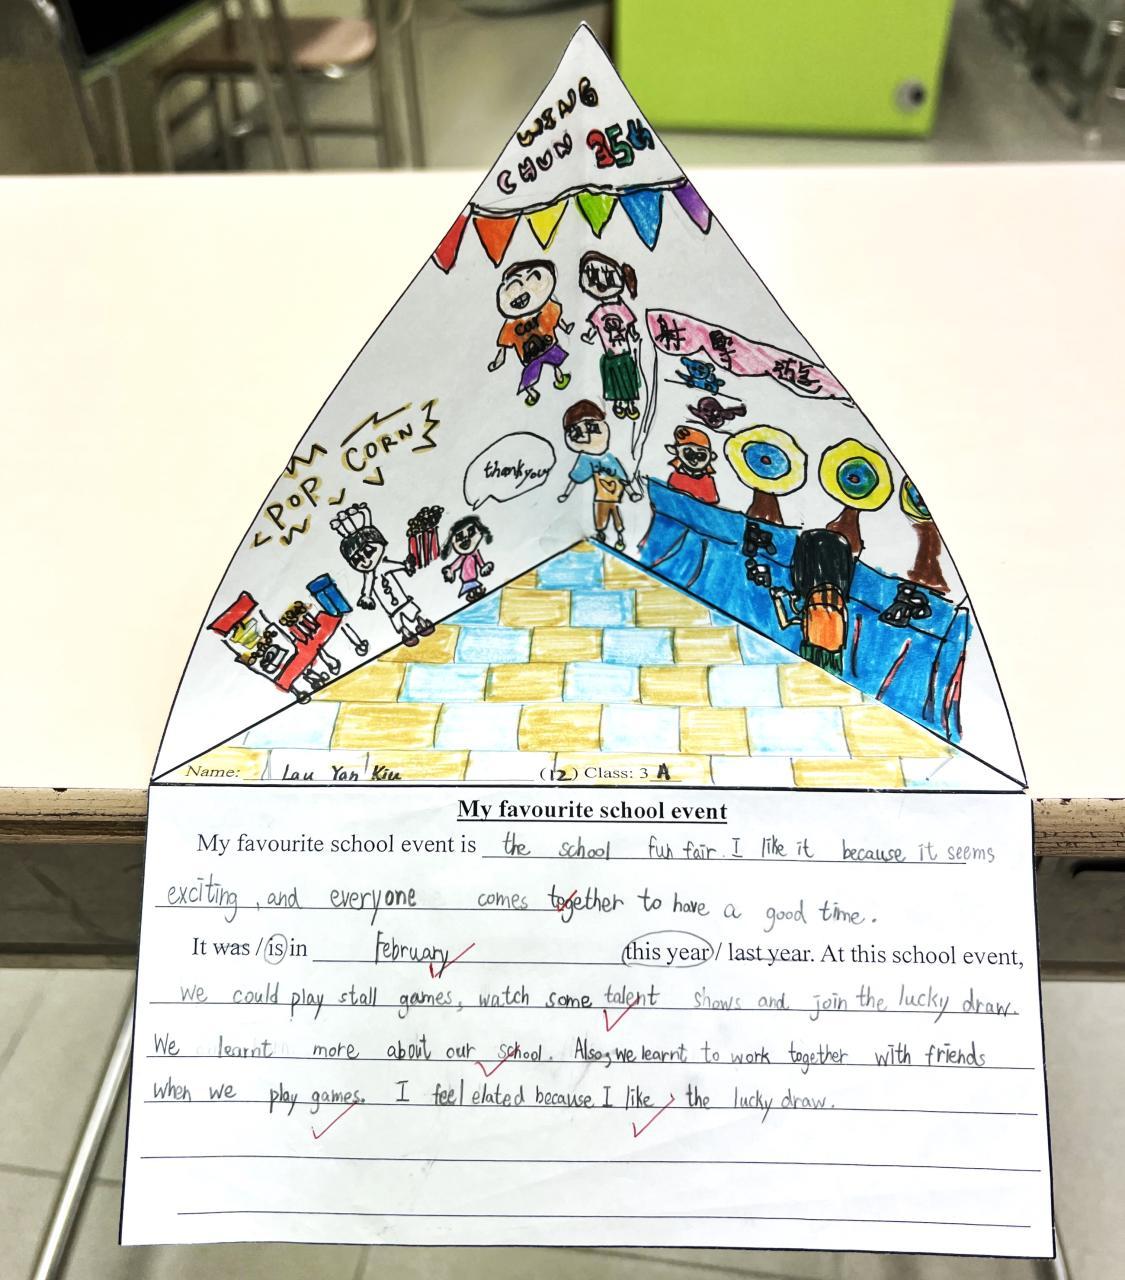 WING
CHUN 35th
Car
射擊遊
POP CORN
thank you
Name: Lau Yan Kiu (12) Class: 3 A
My favourite school event
My favourite school event is the school fun fair. I like it because it seems
exciting, and everyone comes together to have a good time.
It was / is in February this year / last year. At this school event,
we could play stall games, watch some talent shows and join the lucky draw.
We learnt more about our school. Also, we learnt to work together with friends
when we play games. I feel elated because I like the lucky draw.